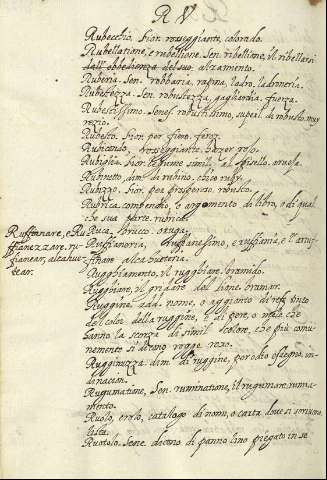 R V
Rubecchio, fior. rosseggiante, colorado.
Rubellatione, e rubellione. Sen. ribellione, il ribellarsi
dall'obbedienza del suo alzamento.
Ruberia. Sen. robbaria, rapina, ladro, ladroneria.
Rubestezza. Sen. robustezza, gagliardia, fuerza.
Rubestissimo. Senes. robustissimo, superl. di robusto, muy
rezio.
Rubesto. fior. per fiero. feroz.
Rubicondo, rosseggiante.
Rubiglia. fior. legume simile al pisello. arveja.
Rubinetto, dim. di rubino.
Rubizzo. fior. per prosperoso, robusto.
Rubrica. compendio, e argomento di libro, o di qual
che sua parte. rubrica.
Ruffianare, e Ru
ffianezzare. ru-
ffianear, alcahue
tear.
Ruca, bruco. oruga.
Ruffianeria, ruffianesimo, e ruffiania, e il aruf-
fianare alcahueteria.
Rugghiamento, il rugghiare, bramido.
Rugghiare, il gridare del lione. bramar.
Ruggine. add. nome, o aggiunto di
del color della ruggine, e al pere, o mele che
hanno la scorza di simil colore, che più comu-
nemente si dicono rogge. roxo.
Rugginuzza. dim. di ruggine, per odio, sdegno, in-
dinacion.
Rugumatione, Sen. ruminatione, il rugumare, rumia-
mento.
Ruolo, e rolo, catalogo di nomi, o carta dove si scrivono.
lista.
Ruotolo. Sene. dicono di panno lino piegato in se